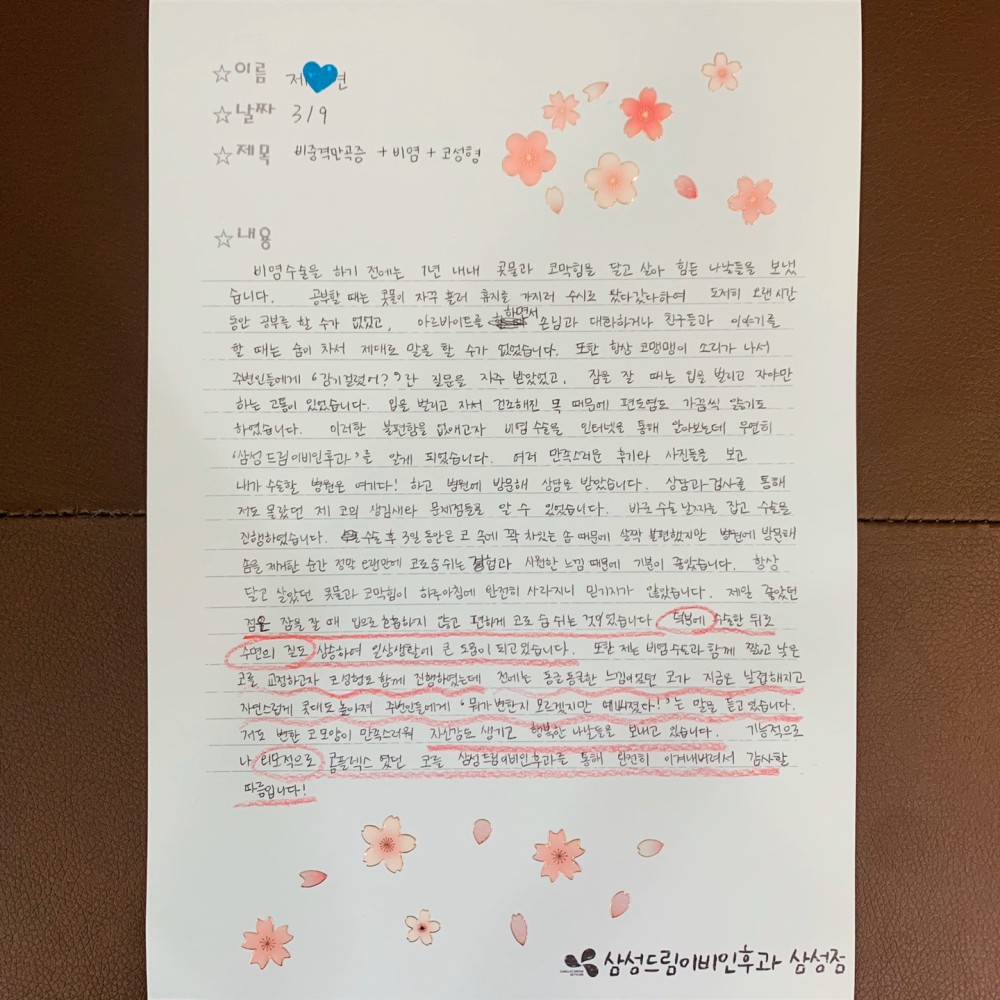 ☆이름 제 연
☆날짜 3/9
☆제목 비중격만곡증 + 비염 + 코성형
☆내용
비염수술을 하기 전에는 1년 내내 콧물과 코막힘을 달고 살아 힘든 나날들을 보냈
습니다. 공부할 때는 콧물이 자꾸 흘러 휴지를 가지러 수시로 왔다갔다하여 도저히 오랜시간
동안 공부를 할 수가 없었고, 아르바이트를 하면서 손님과 대화하거나 친구들과 이야기를
할 때는 숨이 차서 제대로 말을 할 수가 없었습니다. 또한 항상 코맹맹이 소리가 나서
주변인들에게 '감기걸렸어?'란 질문을 자주 받았었고, 잠을 잘 때는 입을 벌리고 자야만
하는 고통이 있었습니다. 입을 벌리고 자서 건조해진 목 때문에 편도염도 가끔씩 앓기도
하였습니다. 이러한 불편함을 없애고자 비염 수술을 인터넷을 통해 알아보는데 우연히
'삼성드림이비인후과'를 알게 되었습니다. 여러 만족스러운 후기와 사진들을 보고
내가 수술할 병원은 여기다! 하고 병원에 방문해 상담을 받았습니다. 상담과 검사를 통해
저도 몰랐던 제 코의 생김새와 문제점들을 알 수 있었습니다. 바로 수술 날짜를 잡고 수술을
진행하였습니다. 수술 후 3일 동안은 코 속에 꽉 차있는 솜 때문에 살짝 불편했지만 병원에 방문해
솜을 제거한 순간 정말 오랜만에 코로 숨쉬는 경험과 시원한 느낌 때문에 기분이 좋았습니다. 항상
달고 살았던 콧물과 코막힘이 하루아침에 완전히 사라지니 믿기지가 않았습니다. 제일 좋았던
점은 잠을 잘 때 입으로 호흡하지 않고 편하게 코로 숨 쉬는 것이었습니다. 덕분에 수술한 뒤로
수면의 질도 상승하여 일상생활에 큰 도움이 되고있습니다. 또한 저는 비염수술과 함께 짧고 낮은
코를 교정하고자 코성형도 함께 진행하였는데 전에는 둥글둥글한 느낌이었던 코가 지금은 날렵해지고
자연스럽게 콧대도 높아져 주변인들에게 '뭐가 변한지 모르겠지만 예뻐졌다!'는 말을 듣고있습니다.
저도 변한 코모양이 만족스러워 자신감도 생기고 행복한 나날들을 보내고 있습니다. 기능적으로
나 외모적으로 콤플렉스 였던 코를 삼성드림이비인후과를 통해 완전히 이겨내버려서 감사할
따름입니다!
삼성드림이비인후과 삼성점